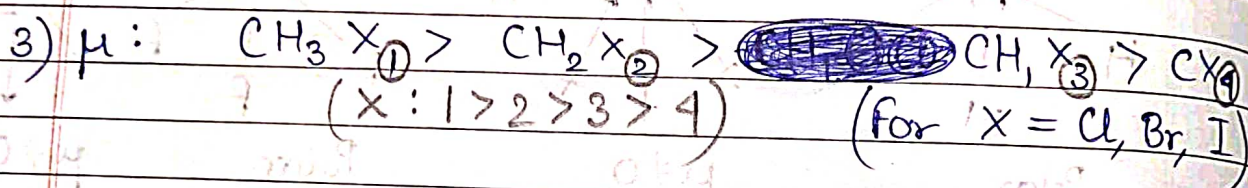 3) μ: CH₃X① > CH₂X② > CH₁X③ > CX④
(X : 1 > 2 > 3 > 4) (for X = Cl, Br, I)